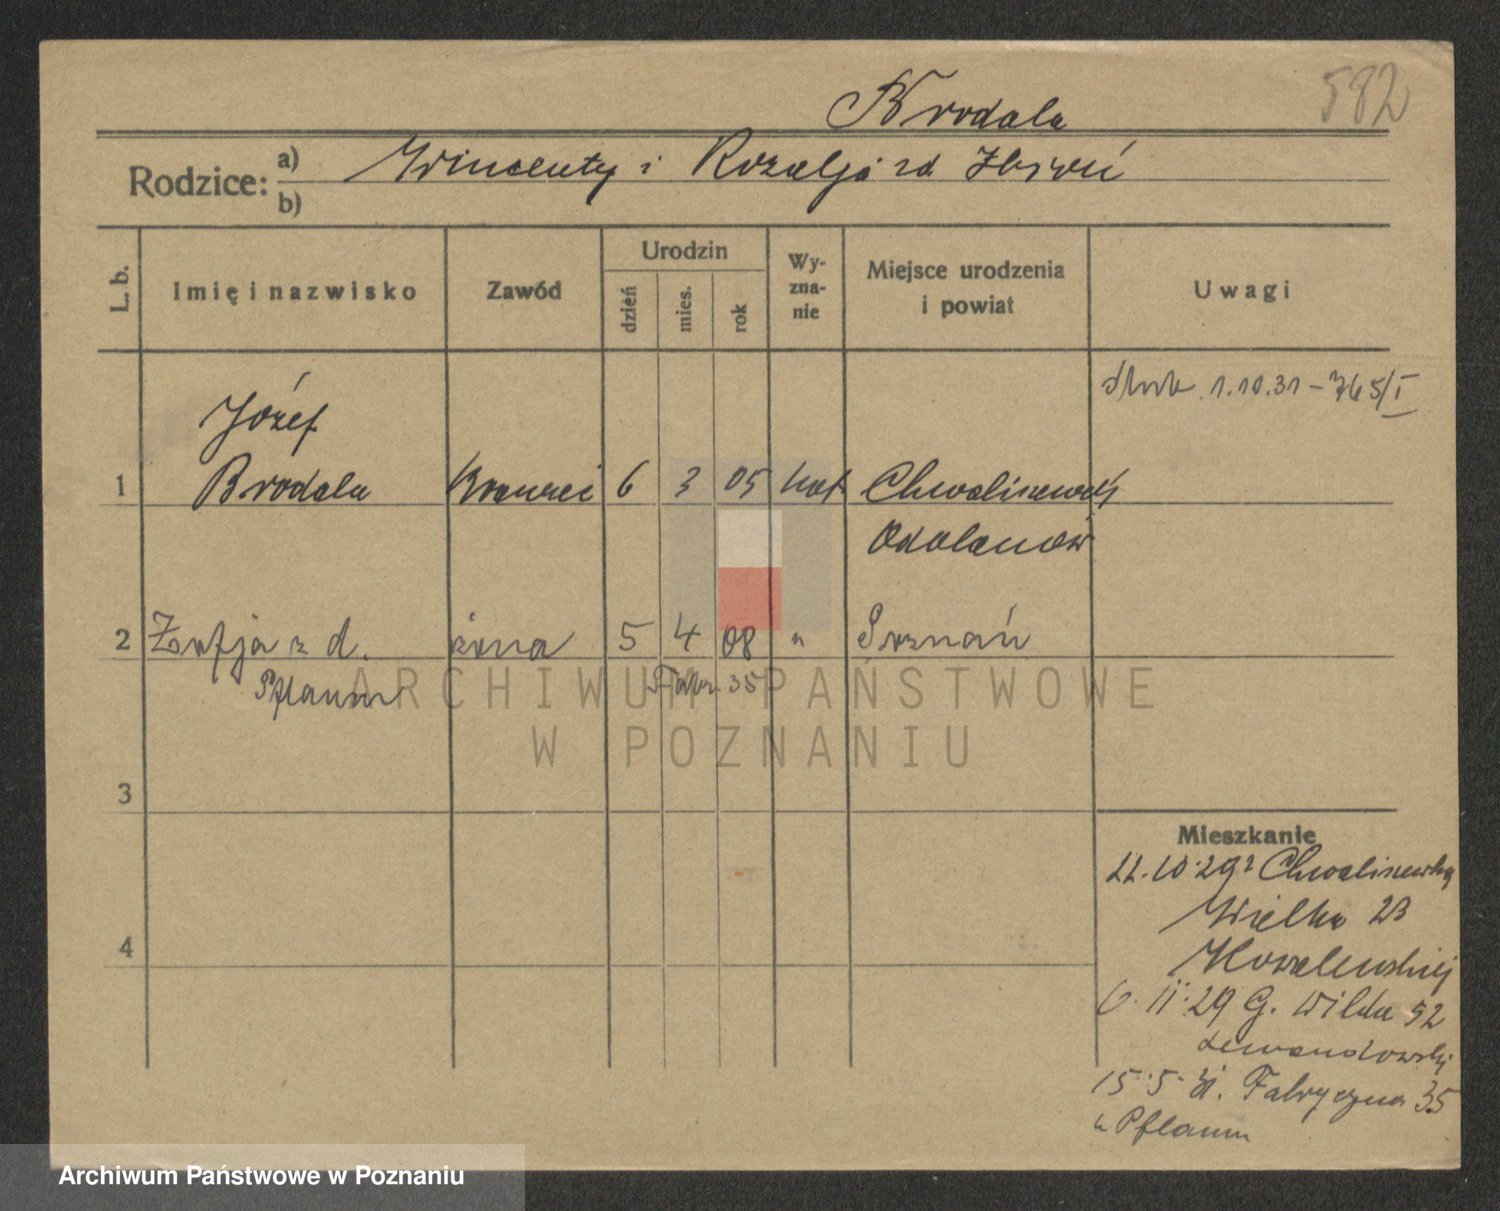 582
Brodala
Rodzice: a) Wincenty i Rozalja zd.
b)
L. b.
Imię i nazwisko
Zawód
Urodzin
dzień
mies.
rok
Wy-
zna-
nie
Miejsce urodzenia
i powiat
Uwagi
1.10.31 – 765/I
Józef
1 Brodala krawiec 6 3 05 kat Chwaliszew
Odolanów
2 Zofja z d. żona 5 4 08 " Poznań
Pflaum Fabr. 35
ARCHIWUM PAŃSTWOWE
W POZNANIU
3
Mieszkanie
22.10.29 z Chwaliszewa
4
Wielka 23
Kowalewskiej
6.11.29 G. Wilda 52
Lewandowski
15.5.31. Fabryczna 35
u Pflaum
Archiwum Państwowe w Poznaniu